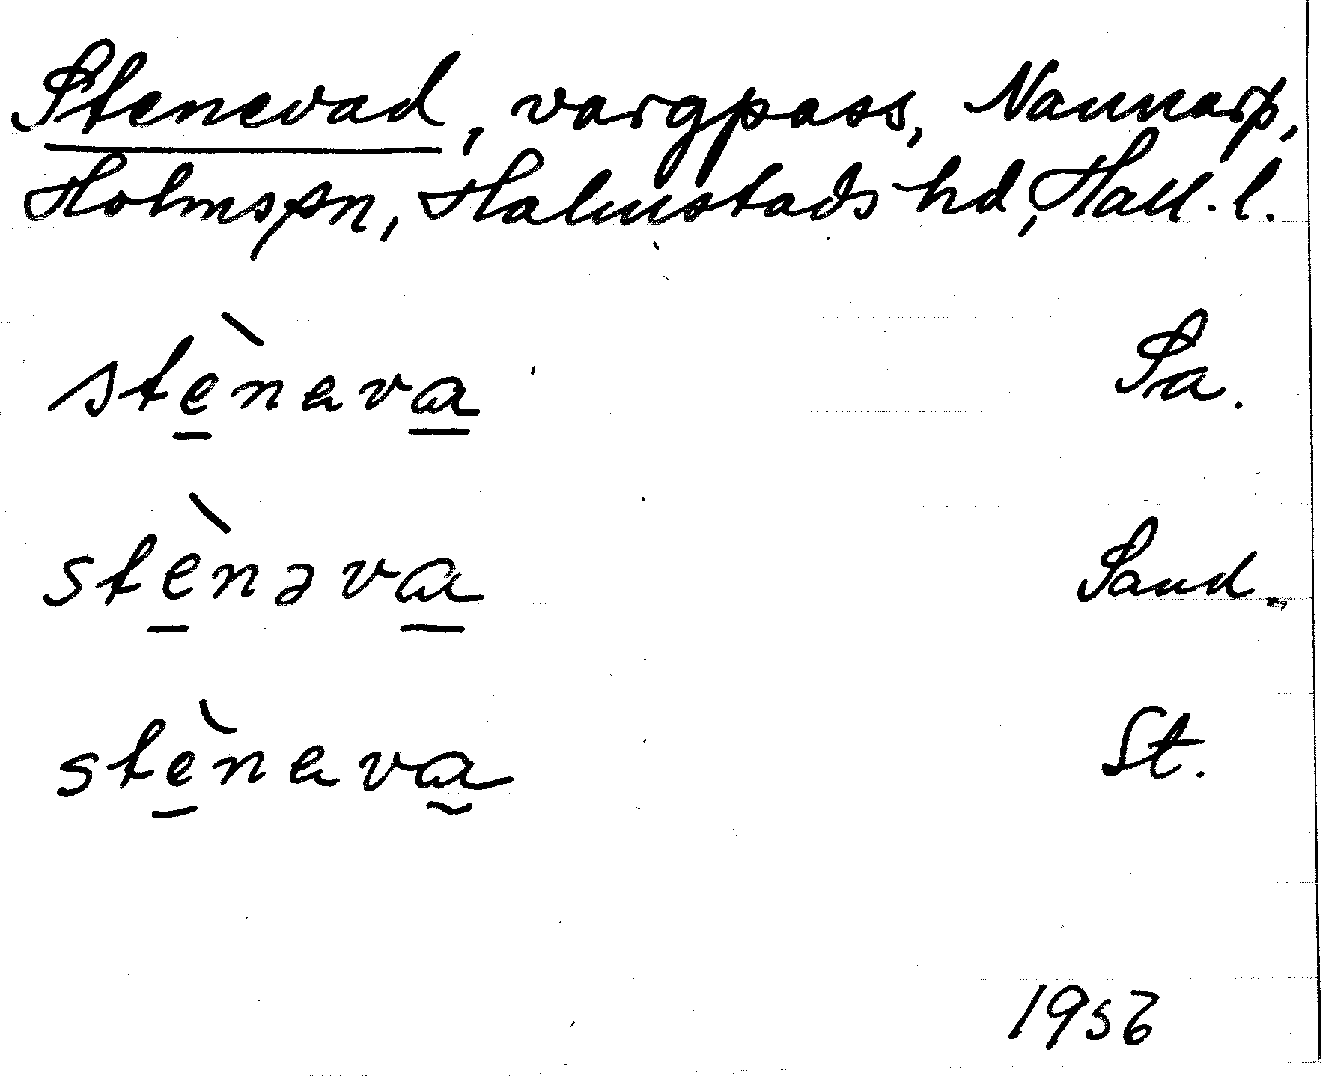 Stenevad, vargpass, Nannarp,
Holms sn, Halmstads hd, Hall. l.
stènava Sa.
stènəva Sand.
stèneva St.
1956